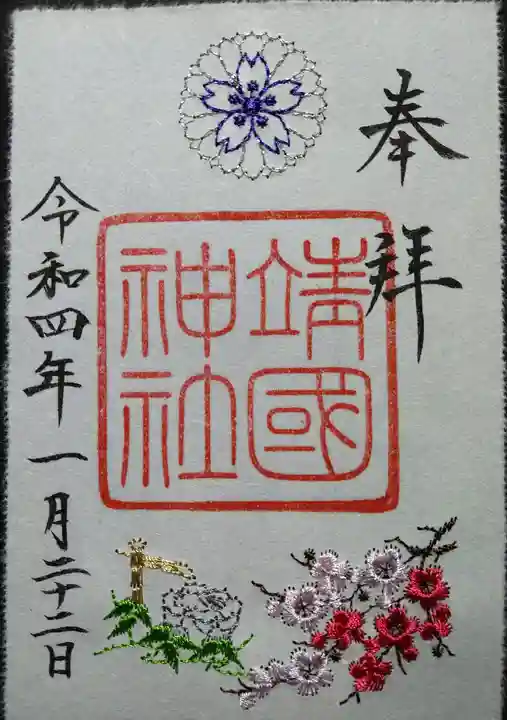 奉拜
靖國
神社
令和四年一月二十二日